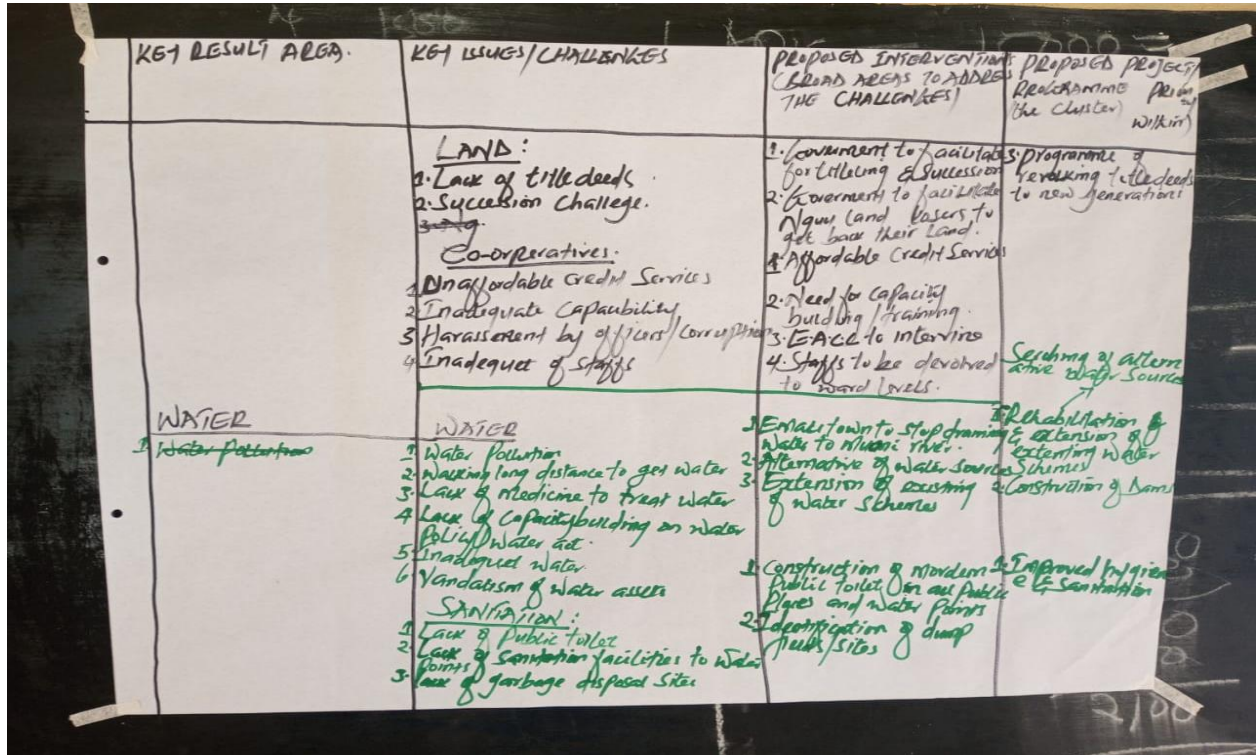 KEY RESULT AREA.
KEY ISSUES/CHALLENGES
PROPOSED INTERVENTIONS
(BROAD AREAS TO ADDRESS
THE CHALLENGES)
PROPOSED PROJECT/
PROGRAMME
(the Cluster) within)
LAND:
1. Lack of title deeds.
2. Succession Challege.
Co-orperatives.
1 Unaffordable Credit Services
2 Inadequate Capabibility
3 Harassement by officers/Corruption
4 Inadequet of Staffs
1. Government to facilitate
for titleling & Succession
2. Goverment to facilitate
Nguu Land losers to
get back their Land.
1. Affordable Credit Services
2. Need for capacity
building/training.
3. EACC to intervine
4. Staffs to be devolved
to ward levels.
3. Programme of
revoking title deeds
to new generations
WATER
1 Water Pollution
WATER
1 Water Pollution
2. Walking long distance to get water
3. Lack of medicine to treat water
4 Lack of Capacity building on water
Policy/Water act.
5. Inadequet water
6 Vandalism of water assets
SANITATION:
1 Lack of Public toilet
2 Lack of sanitation facilities to water
Points
3. Lack of garbage disposal sites
1 Emali town to stop draining
Water to Muooni river.
2. Alternative of water sources
3. Extension of existing
of water schemes
1. Construction of mordern
Public toilet in all Public
Places and water points
2. Identification of dump
fields/sites
Serching of altern
ative water sources
1. Rehabilitation
& extension of
extenting water
Schemes
2. Construction of Dams
1. Improved hygien
e & sanitation
2100